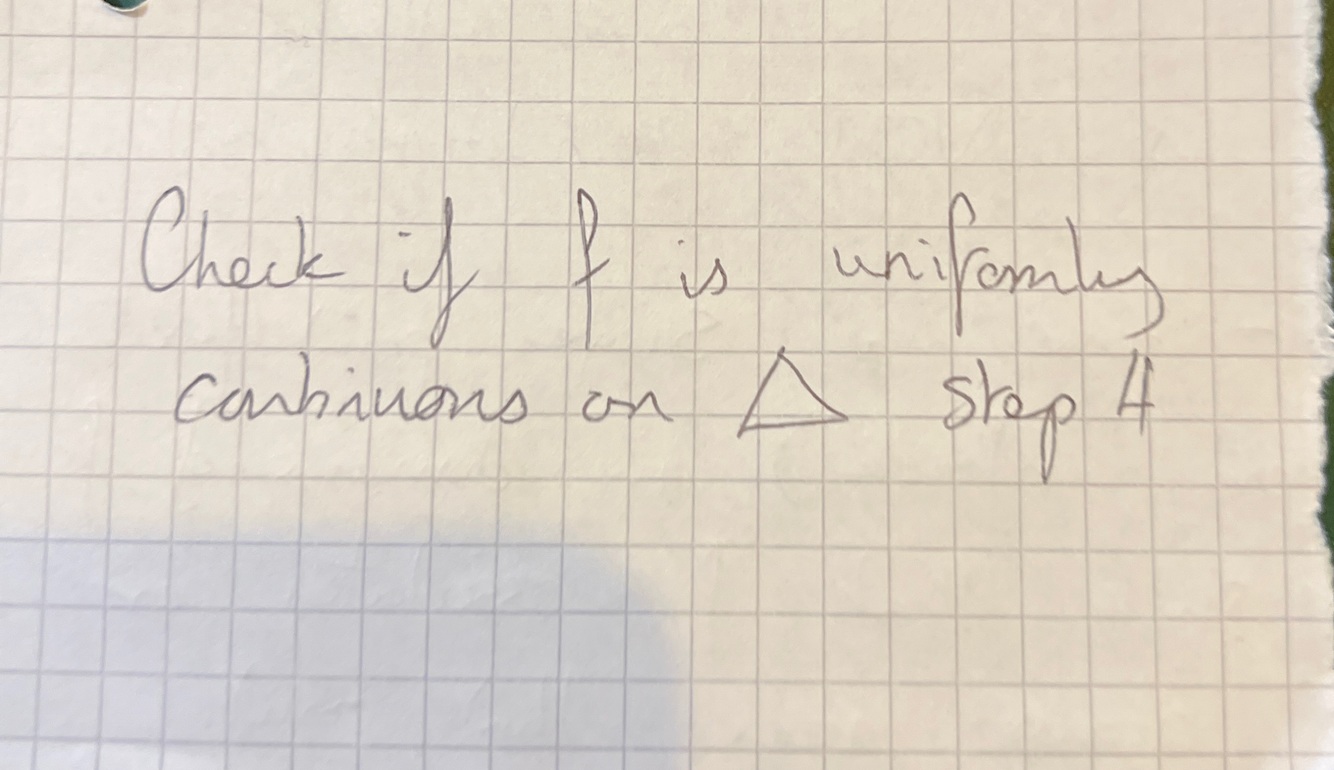 Check if f is uniformly
continuous on △ step 4